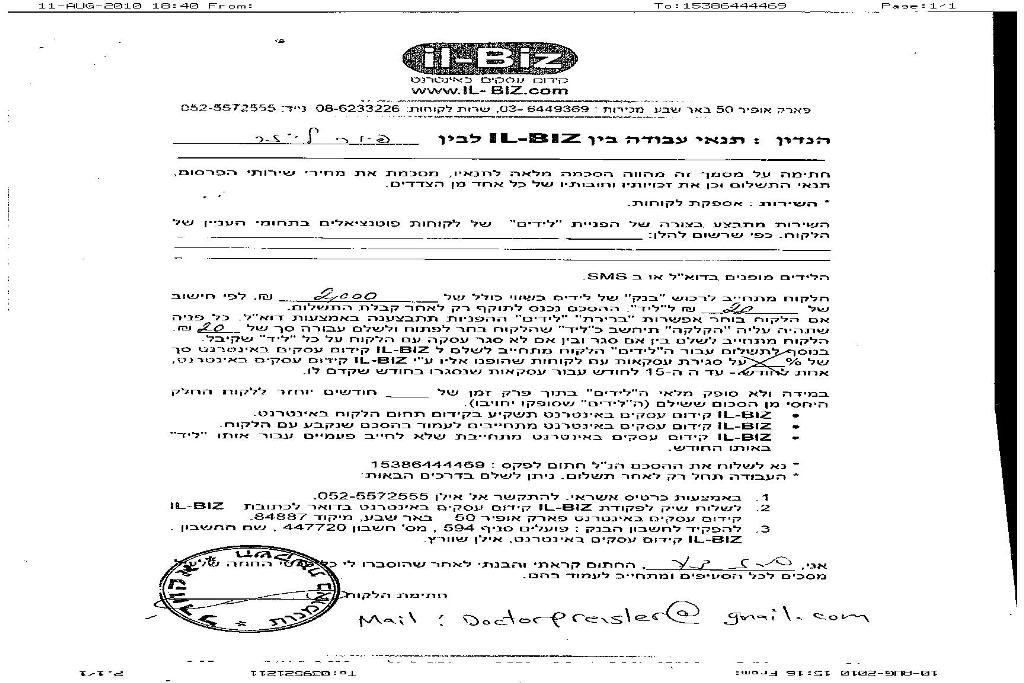 11-AUG-2010 18:40 From: To:15386444469 Page:1/1
il-Biz
קידום עסקים באינטרנט
www.IL-BIZ.com
פארק אופיר 50 באר שבע. מכירות: 03-6449369, שרות לקוחות: 08-6233226 נייד: 052-5572555
הנדון : תנאי עבודה בין IL-BIZ לבין
חתימה על מסמך זה מהווה הסכמה מלאה לתנאיו, מסכמת את מחירי שירותי הפרסום,
תנאי התשלום וכן את זכויותיו וחובותיו של כל אחד מן הצדדים.
* השירות : אספקת לקוחות.
השירות מתבצע בצורה של הפניית "לידים" של לקוחות פוטנציאלים בתחומי העניין של
הלקוח. כפי שרשום להלן:
הלידים מופנים בדוא"ל או ב SMS.
הלקוח מתחייב לרכוש "בנק" של לידים בשווי כולל של 2,000 ₪. לפי חישוב
של 20 ₪ ל"ליד". ההסכם נכנס לתוקף רק לאחר קבלת התשלום.
אם הלקוח בוחר אפשרות "ברירת" "לידים" ההפניות תתבצענה באמצעות דוא"ל. כל פניה
שתהיה עליה "הקלקה" תיחשב כ"ליד" שהלקוח בחר לפתוח ולשלם עבורה סך של 20 ₪.
הלקוח מתחייב לשלם בין אם סגר ובין אם לא סגר עסקה עם הלקוח על כל "ליד" שקיבל.
בנוסף לתשלום עבור ה"לידים" הלקוח מתחייב לשלם ל IL-BIZ קידום עסקים באינטרנט סך
של % על סגירת עסקאות עם לקוחות שהופנו אליו ע"י IL-BIZ קידום עסקים באינטרנט,
אחת לחודש - עד ה ה-15 לחודש עבור עסקאות שנסגרו בחודש שקדם לו.
במידה ולא סופק מלאי ה"לידים" בתוך פרק זמן של ____ חודשים יוחזר ללקוח החלק
היחסי מן הסכום ששילם (ה"לידים" שסופקו יחויבו).
• IL-BIZ קידום עסקים באינטרנט תשקיע בקידום תחום הלקוח באינטרנט.
• IL-BIZ קידום עסקים באינטרנט מתחייבים לעמוד בהסכם שנקבע עם הלקוח.
• IL-BIZ קידום עסקים באינטרנט מתחייבת שלא לחייב פעמיים עבור אותו "ליד"
באותו החודש.
* נא לשלוח את ההסכם הנ"ל חתום לפקס : 15386444469
* העבודה תחל רק לאחר תשלום. ניתן לשלם בדרכים הבאות:
1. באמצעות כרטיס אשראי. להתקשר אל אילן 052-5572555.
2. לשלוח שיק לפקודת IL-BIZ קידום עסקים באינטרנט בדואר לכתובת IL-BIZ
קידום עסקים באינטרנט פארק אופיר 50 באר שבע, מיקוד 84887.
3. להפקיד לחשבון הבנק : פועלים סניף 594 , מס' חשבון 447720 , שם החשבון.
IL-BIZ קידום עסקים באינטרנט, אילן שוורץ.
אני, , החתום קראתי והבנתי לאחר שהוסברו לי החוזה
מסכים לכל הסעיפים ומתחייב לעמוד בהם.
חתימת הלקוח
Mail : Doctorpreisler@gmail.com
10-AUG-2010 15:16 From: To:039521211 P.1/1